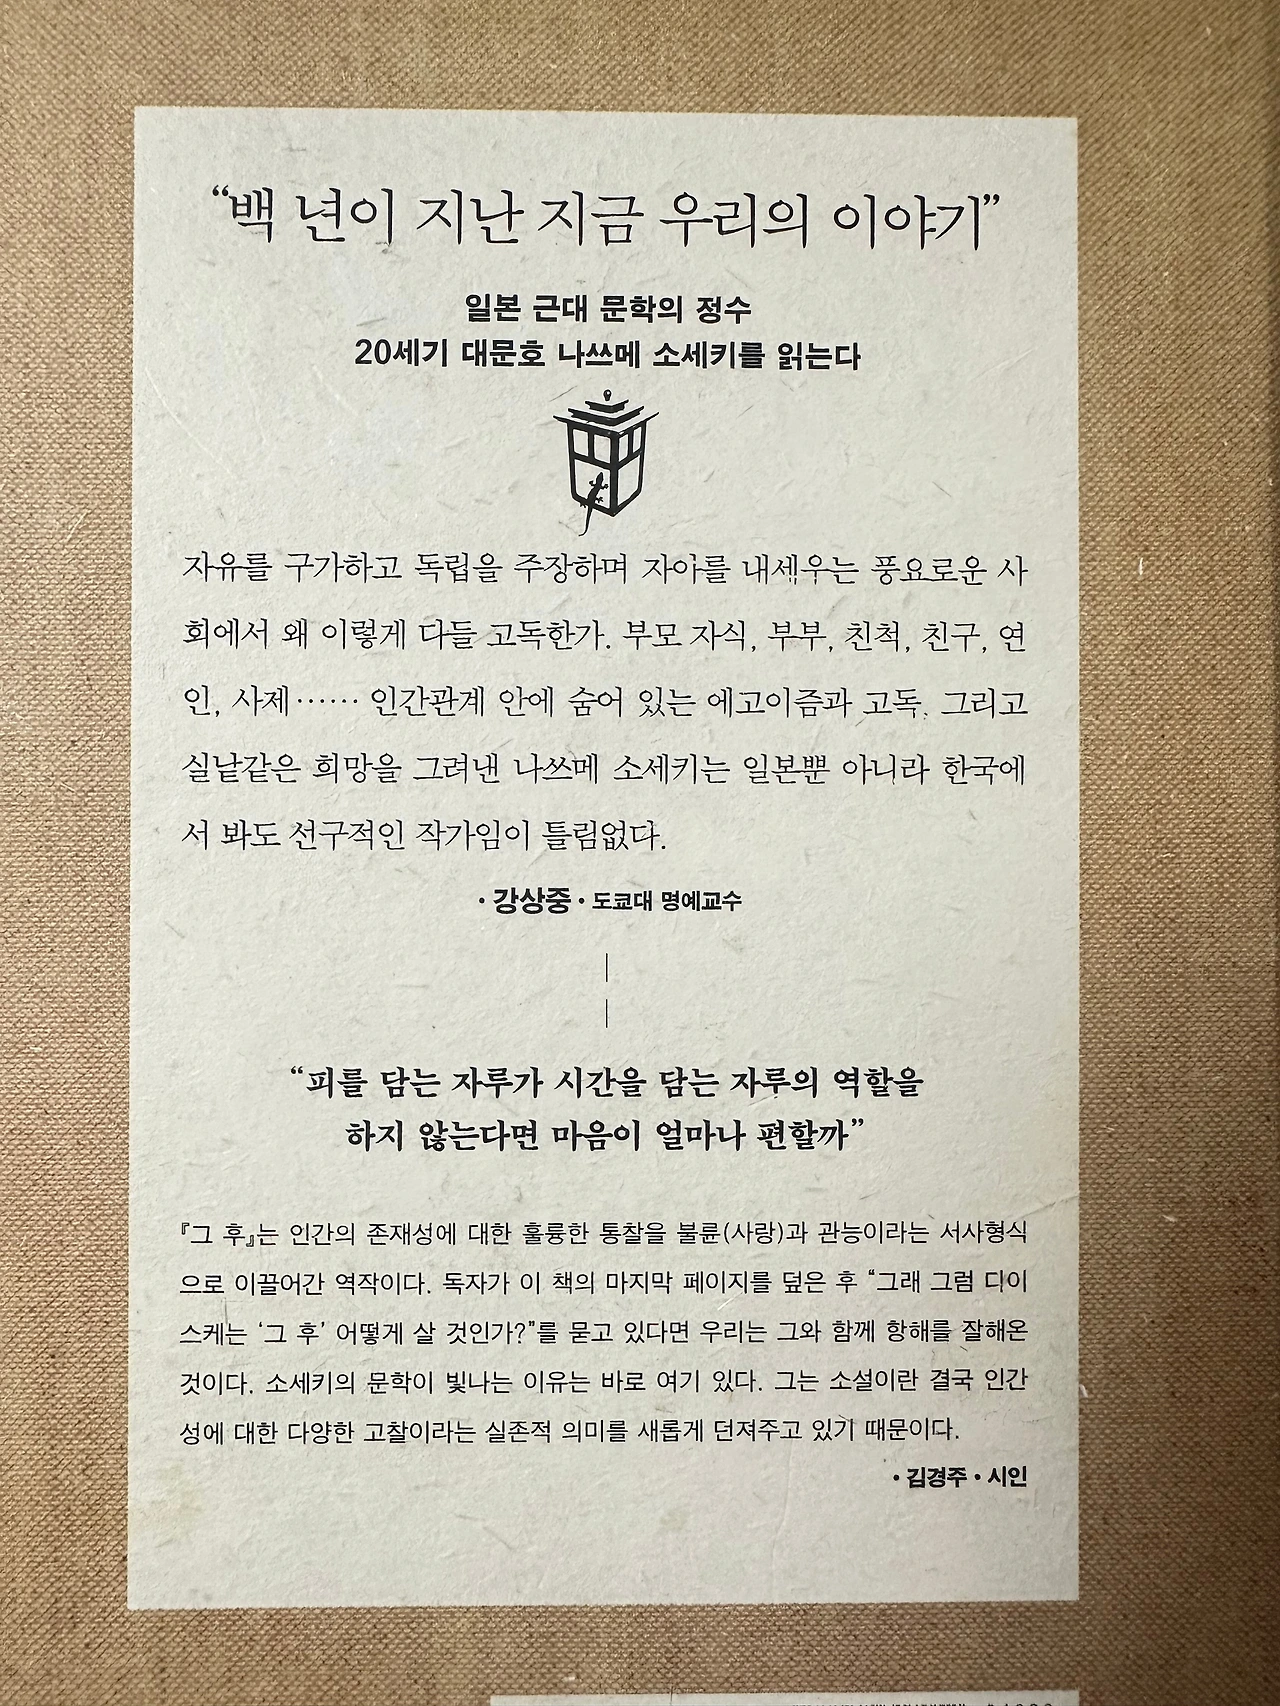 “백 년이 지난 지금 우리의 이야기”
일본 근대 문학의 정수
20세기 대문호 나쓰메 소세키를 읽는다
자유를 구가하고 독립을 주장하며 자아를 내세우는 풍요로운 사
회에서 왜 이렇게 다들 고독한가. 부모 자식, 부부, 친척, 친구, 연
인, 사제…… 인간관계 안에 숨어 있는 에고이즘과 고독. 그리고
실낱같은 희망을 그려낸 나쓰메 소세키는 일본뿐 아니라 한국에
서 봐도 선구적인 작가임이 틀림없다.
· 강상중 · 도쿄대 명예교수
“피를 담는 자루가 시간을 담는 자루의 역할을
하지 않는다면 마음이 얼마나 편할까”
『그 후』는 인간의 존재성에 대한 훌륭한 통찰을 불륜(사랑)과 관능이라는 서사형식
으로 이끌어간 역작이다. 독자가 이 책의 마지막 페이지를 덮은 후 “그래 그럼 다이
스케는 ‘그 후’ 어떻게 살 것인가?”를 묻고 있다면 우리는 그와 함께 항해를 잘해온
것이다. 소세키의 문학이 빛나는 이유는 바로 여기 있다. 그는 소설이란 결국 인간
성에 대한 다양한 고찰이라는 실존적 의미를 새롭게 던져주고 있기 때문이다.
· 김경주 · 시인